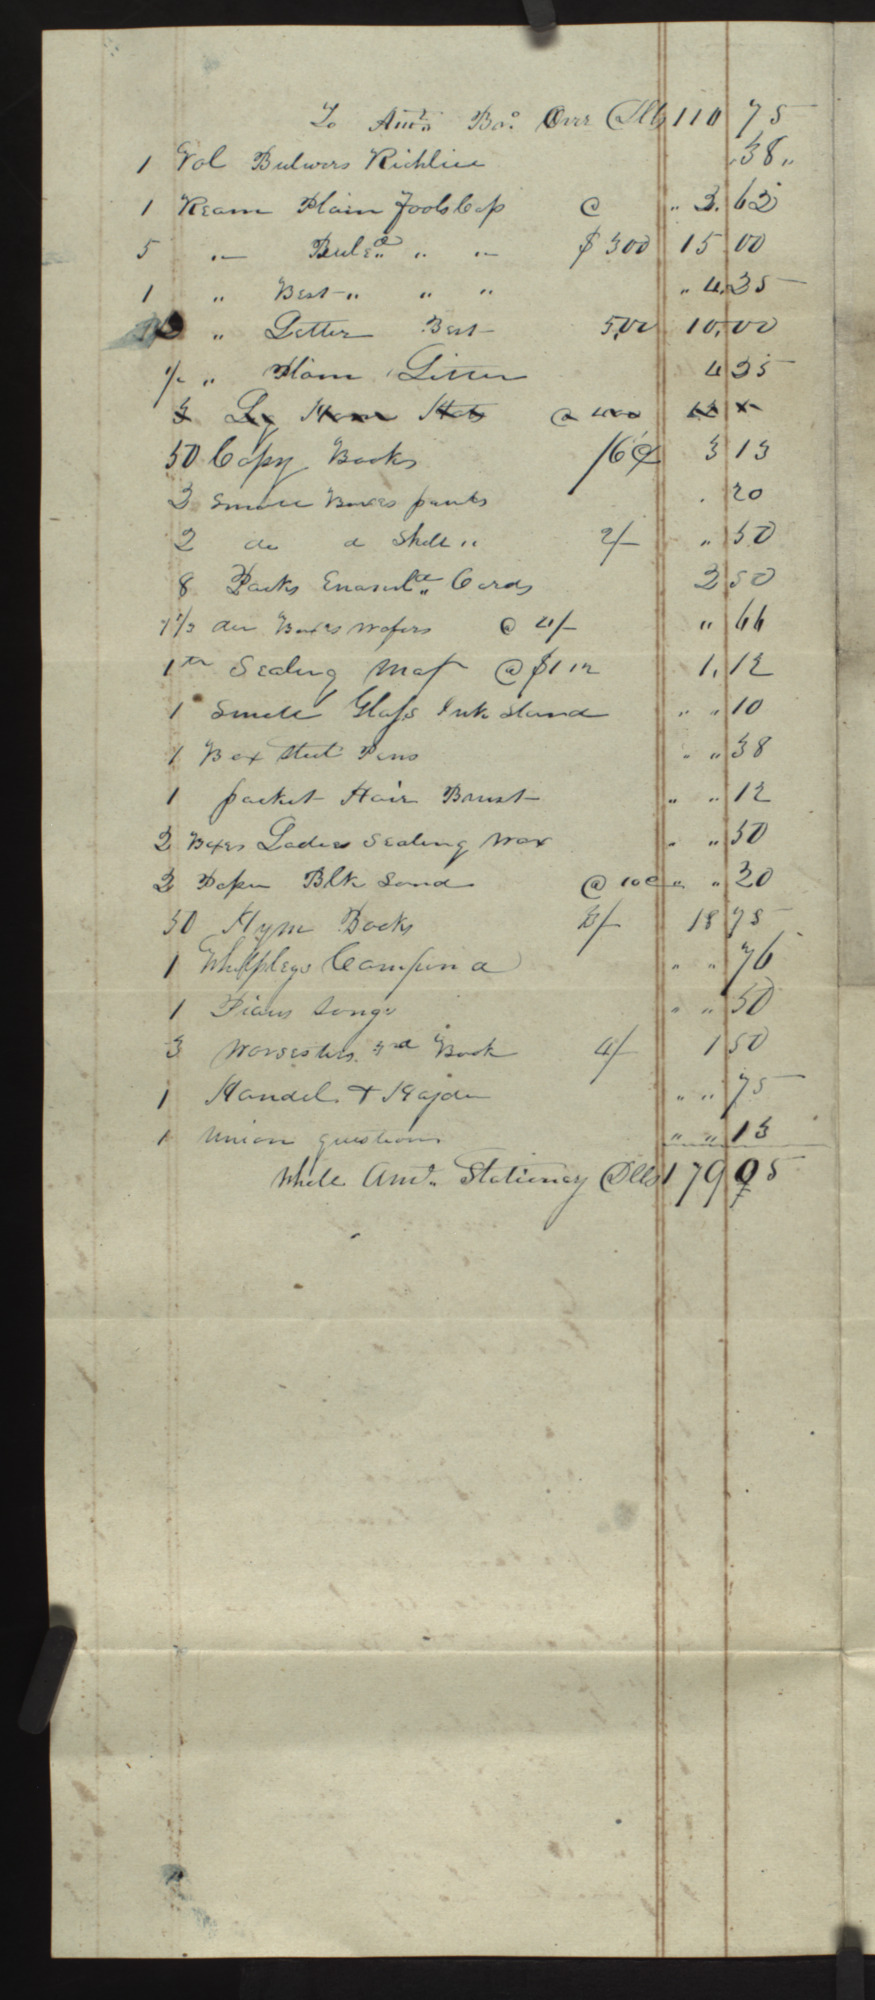 To Amt. Bot. Over Dlls 110 75
1 Vol Bulwers Richlieu .38 "
1 Ream Plain Foolscap @ " 3.62
5 " Ruled " " $300 15 00
1 " Best " " " " 4.25
" Letter Best 5,00 10,00
1/2 " Plain Letter
50 Copy Books /6¢ 3 13
2 Small Boxes paints . 20
2 do d Shell " 2/- " 50
8 Packs Enamld. Cards 2 50
doz Boxes wafers @ 4/- " 66
1 Sealing @ $1 12 1, 12
1 Small Glass Ink Stand " " 10
1 Box Steel Pens " " 38
1 packet Hair " " 12
2 Boxes Ladies Sealing Wax " " 50
2 Paper Blk Sand @ 10c " " 20
50 Hym Books 3/- 18 75
1 Whelpleys Compend " " 76
1 Pious Songs " " 50
3 Worsesters 3rd Book 4/- 1 50
1 Handel & Hayden " " 75
1 Union questions " " 13
Whole Amt. Stationery Dlls 179 05